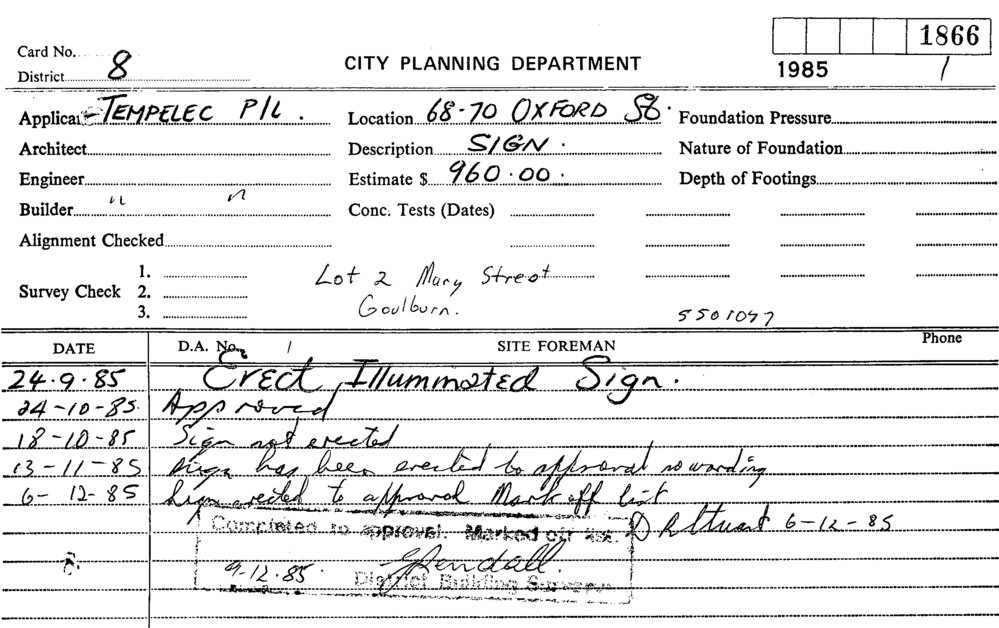 Card No. 1866
District 8 CITY PLANNING DEPARTMENT 1985 /
Applicant TEMPELEC P/L. Location 68-70 OXFORD St. Foundation Pressure
Architect Description SIGN. Nature of Foundation
Engineer Estimate $ 960.00. Depth of Footings
Builder " " Conc. Tests (Dates)
Alignment Checked
1.
Survey Check 2. Lot 2 Mary Street
3. Goulburn. 5501047
DATE D.A. No. / SITE FOREMAN Phone
24.9.85 Erect Illuminated Sign.
24-10-85 Approved
18-10-85 Sign not erected
13-11-85 Sign has been erected to approval no wording
6-12-85 Sign erected to approval Mark off list
Completed to approval. Marked off 6-12-85
9.12.85. District Building Surveyor